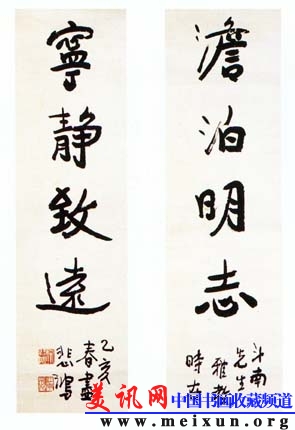 澹泊明志
斗南
先生
雅教
時在
寧靜致遠
乙亥
春盡
悲鴻
美讯网 中国书画收藏频道
www.meixun.org